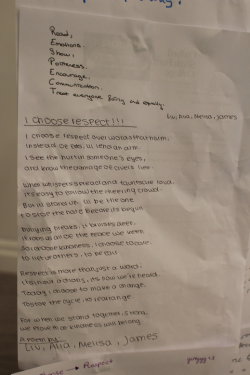 Read,
Emotions.
Show,
Politeness.
Encourage.
Communication.
Treat everyone fairly and equally.
Liv, Alia, Melisa, James
I choose respect!!!
I choose respect over words that harm,
Instead of
I see the hurt in someone's eyes,
and know the damage of
When whispers spread and taunts are loud,
it's easy to follow the cheering crowd.
But ill stand up, ill be the one
to stop the hate before its begun
Bullying breaks, it bruises deep,
it the peace we keep
So I choose kindness, I choose to care
to lift others, to be fair
Respect is more than just a word,
its in our actions, its how we're heard.
Today I choose to make a change,
to stop the cycle, to rearrange
For when we stand together, strong,
we prove that kindness will belong.
A poem by
Liv, Alia, Melisa, James
Respect